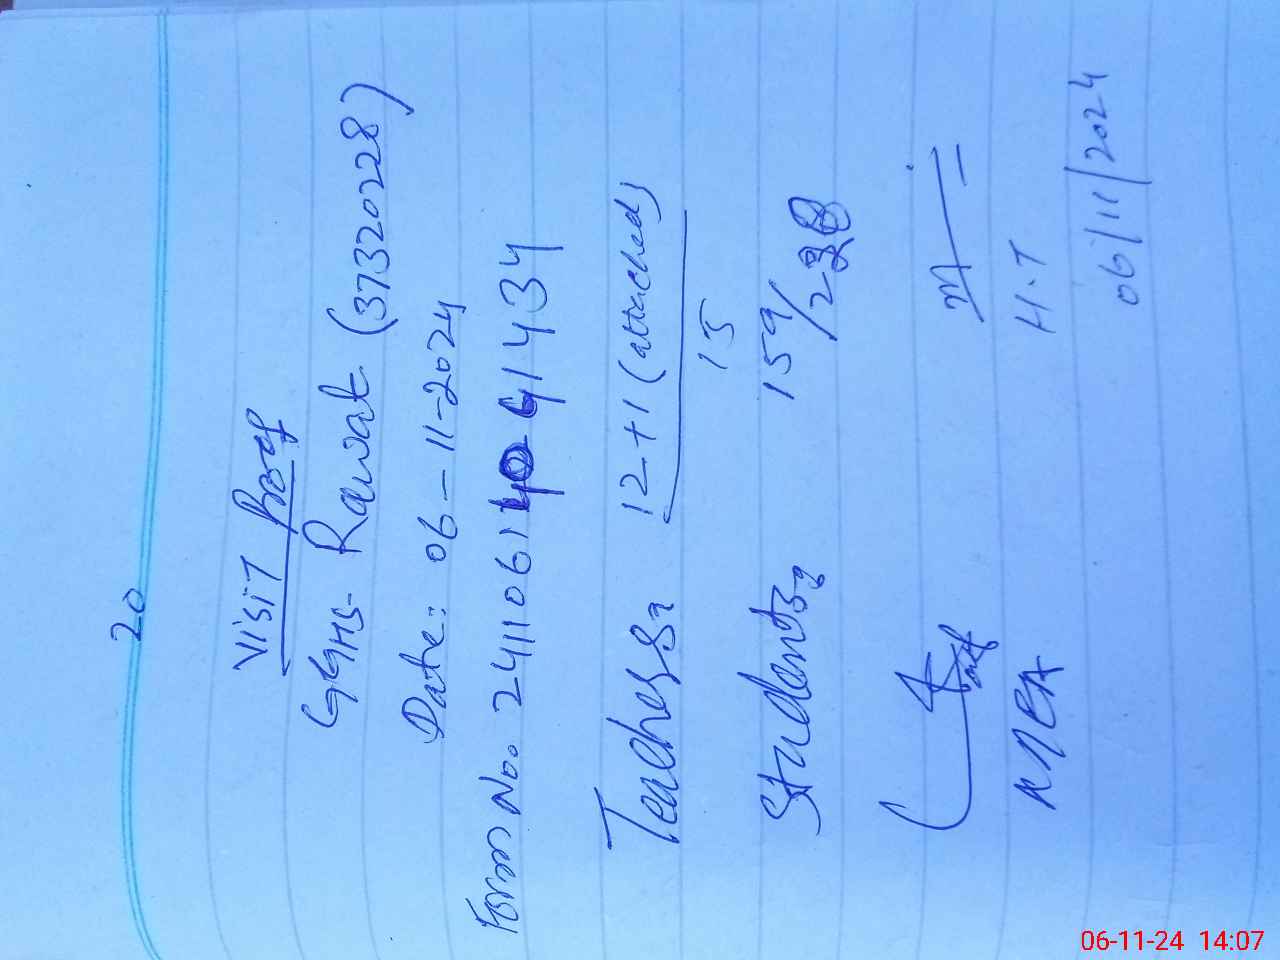 20
Visit Proof
GGHS Rawat (37320228)
Date: 06-11-2024
Form No. 241106141434
Teachers: 12+1 (attached)
15
Students: 159/228
MEA
H.T
06/11/2024
06-11-24 14:07